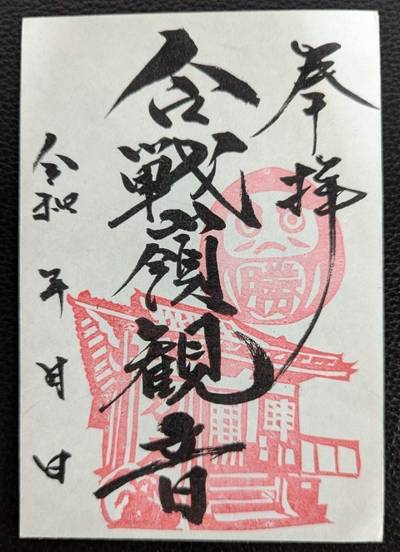 奉拝
合戦嶺観音
勝
令和 年 月 日